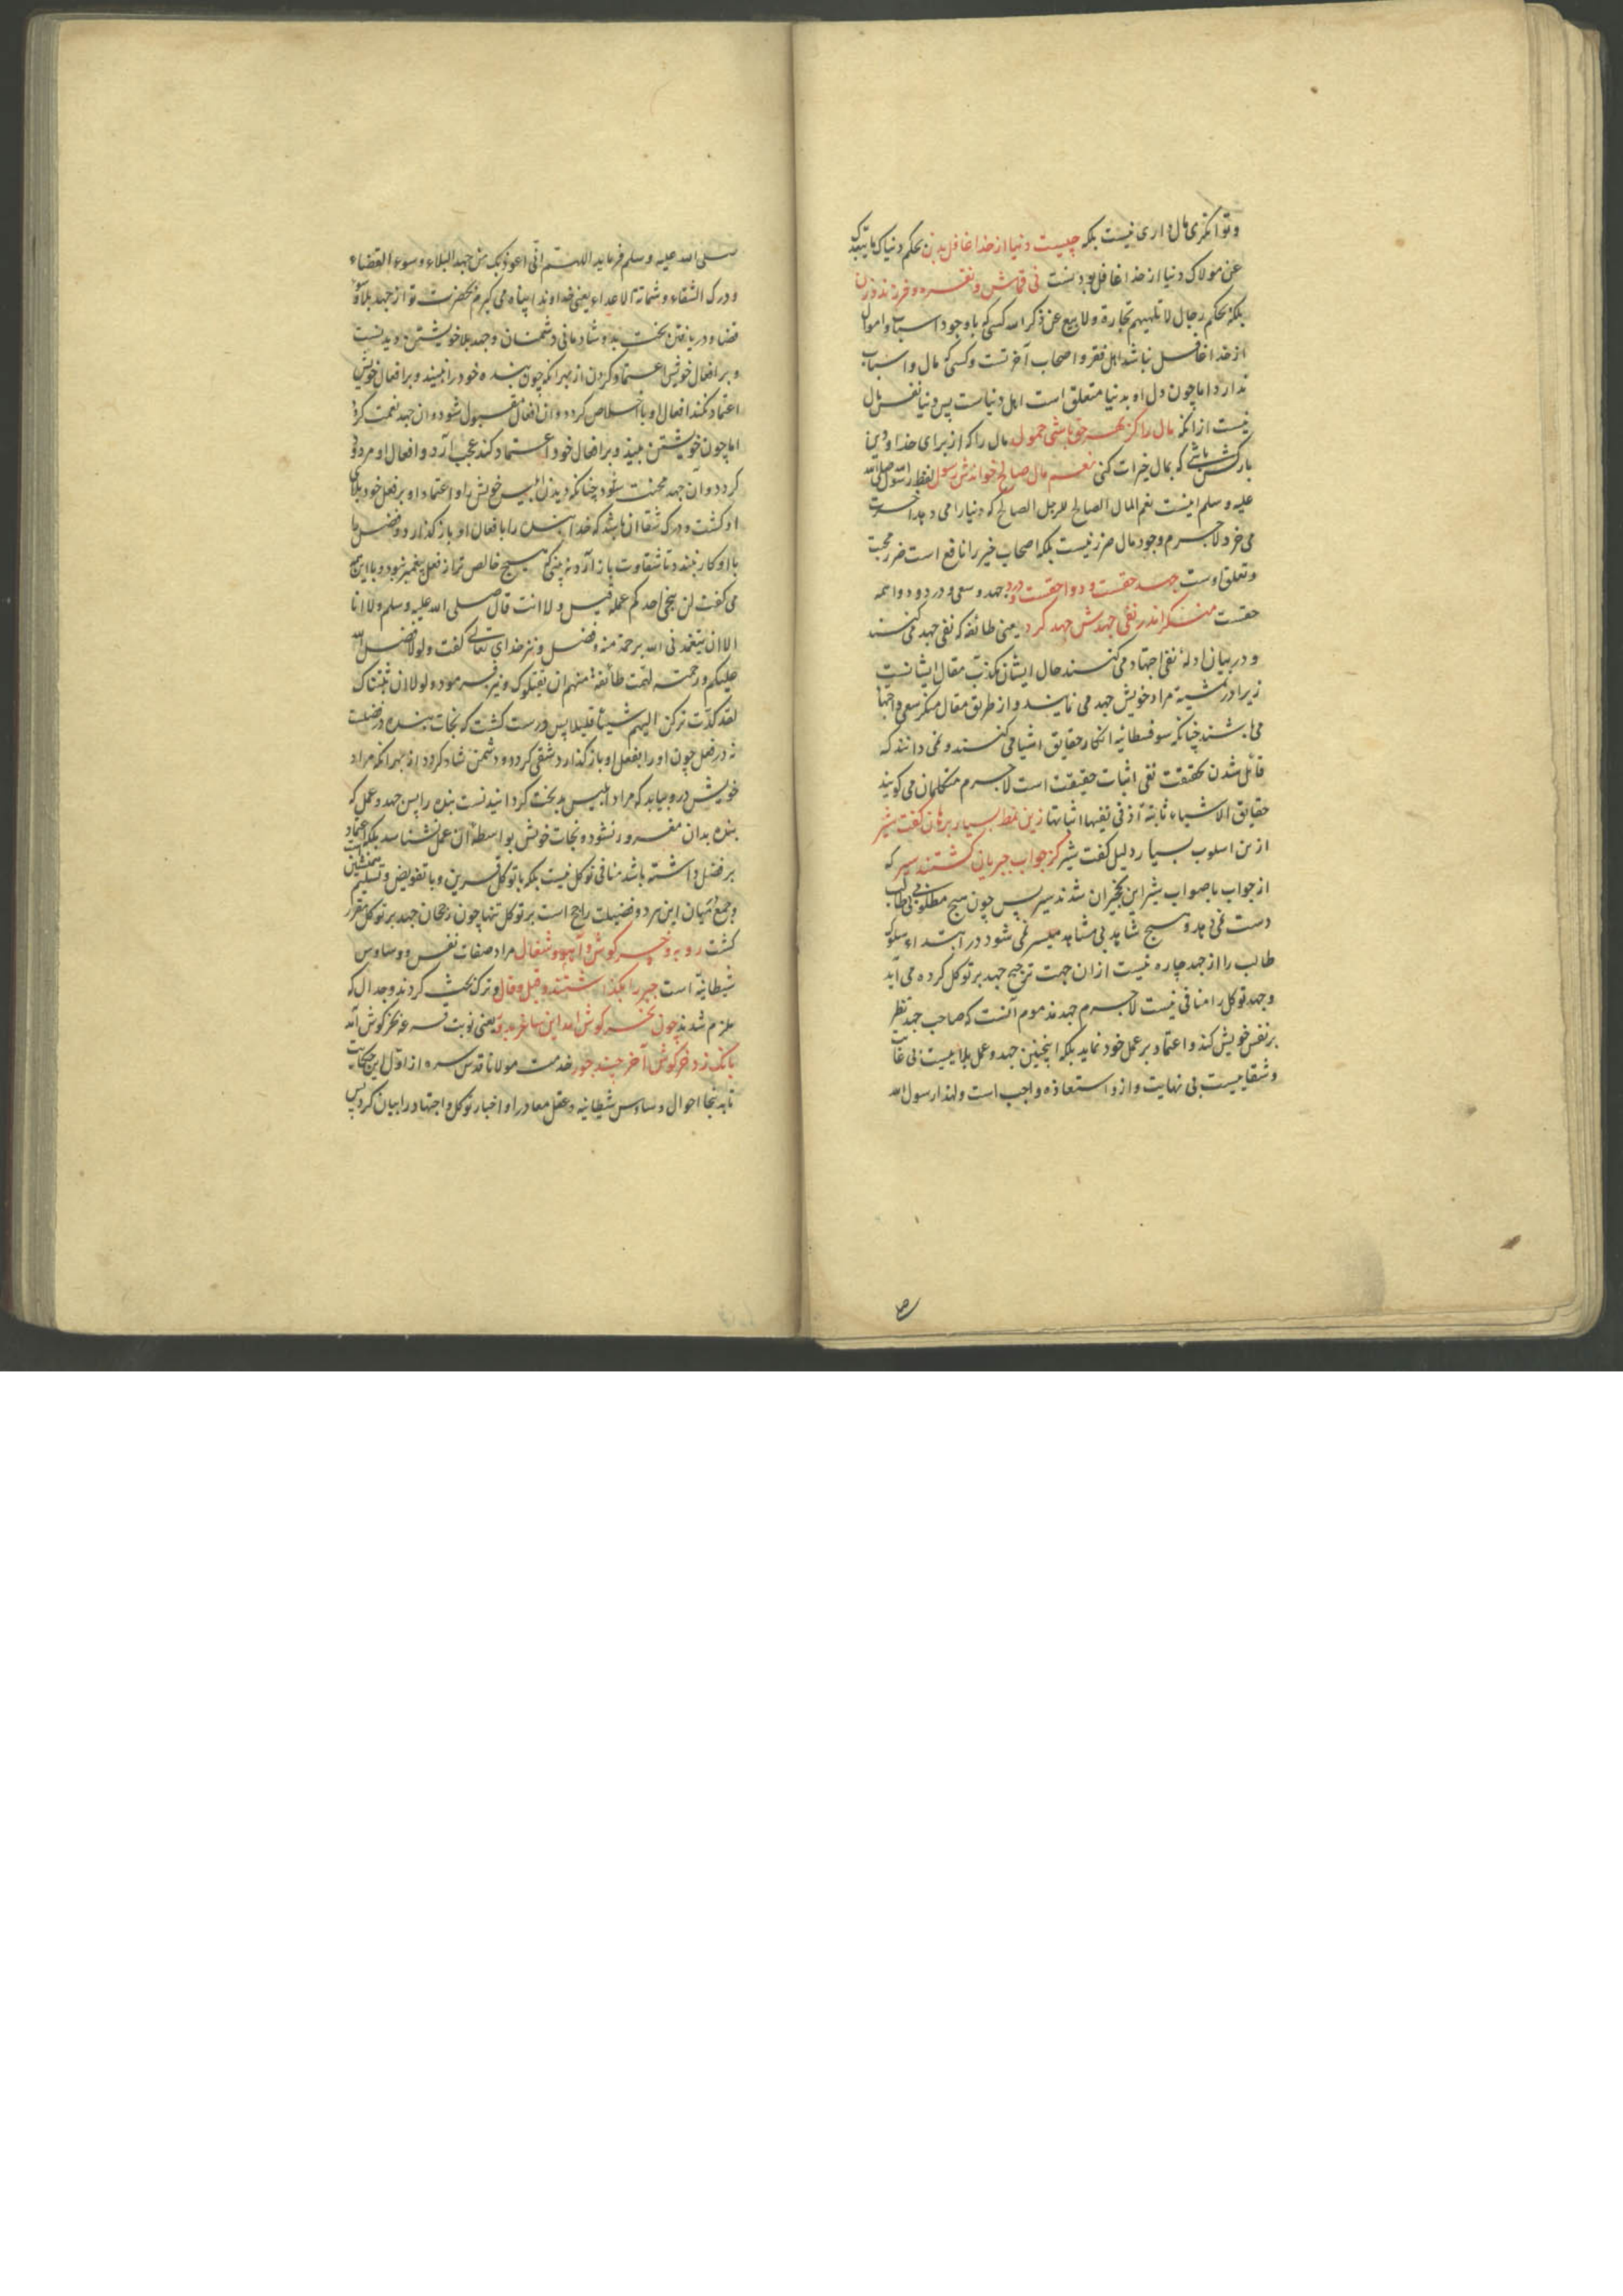 و توانگری مال داری نیست بلکه چیست دنیا از خدا غافل بدن بحکم دنیاک ما یبعدک
عن مولاک دنیا از خدا غافل بودنست نی قماش و نقره و فرزند و زن
بلکه بحکم رجال لا تلهیهم تجارة ولا بیع عن ذکر الله کسی که با وجود اسباب و اموال
از خدا غافل نباشد اهل فقر و اصحاب آخرتست و کسی که مال و اسباب
ندارد اما چون دل او بدنیا متعلق است اهل دنیاست پس دنیا نفس مال
نیست از آنکه مال را کز بهر حق باشی حمول مال را که از برای خدا و دین
بارکش باشی که بمال خیرات کنی نعم مال صالح خواندش رسول لفظ رسول الله صلی الله
علیه و سلم اینست نعم المال الصالح للرجل الصالح که دنیا را می دهد آخرت
می خرد لاجرم وجود مال ضرر نیست بلکه اصحاب خیر را نافع است ضرر محبت
و تعلق اوست جهد حقست و دوا حقست و درد جهد و سعی و درد و دوا همه
حقست منکر اندر نفی جهدش جهد کرد یعنی طائفه که نفی جهد می کنند
و در بیان ادلۀ نفی اجتهاد می کنند حال ایشان مکذب مقال ایشانست
زیرا در تمشیة مراد خویش جهد می نمایند و از طریق مقال منکر سعی و اجتها
می باشند چنانکه سوفسطائیه انکار حقایق اشیا می کنند و نمی دانند که
قائل شدن بحقیقت نفی اثبات حقیقت است لاجرم متکلمان می گویند
حقایق الاشیاء ثابتة اذ فی نفیها اثباتها زین نمط بسیار برهان گفت شیر
ازین اسلوب بسیار دلیل گفت شیر کز جواب جبریان گشتند سیر که
از جواب با صواب شیر این نخچیران شدند سیر پس چون هیچ مطلوبی بی طلب
دست نمی دهد و هیچ شاهد بی مشاهد میسر نمی شود در ابتداء سلوک
طالب را از جهد چاره نیست ازان جهت ترجیح جهد بر توکل کرده می آید
و جهد توکل را منافی نیست لاجرم جهد مذموم آنست که صاحب جهد نظر
بر نفس خویش کند و اعتماد بر عمل خود نماید بلکه اینچنین جهد و عمل بلاییست بی غایت
و شقاییست بی نهایت و ازو استعاذه واجب است و لهذا رسول الله
صلی الله علیه و سلم فرماید اللهم انی اعوذ بک من جهد البلاء و سوء القضاء
و درک الشقاء و شماتة الاعداء یعنی خداوندا پناه می گیرم بحضرت تو از جهد بلا و سوء
قضا و دریافتن بدبخت و شادمانی دشمنان و جهد بلا خویشتن دیدنست
و بر افعال خویش اعتماد کردن از بهر آنکه چون بنده خود را نبیند و بر افعال خویش
اعتماد نکند افعال او با اخلاص گردد و آن افعال مقبول شود و آن جهد نعمت گردد
اما چون خویشتن بیند و بر افعال خود اعتماد کند عجب آرد و افعال او مردود
گردد و آن جهد محنت شود چنانکه دیدن ابلیس خویش را و اعتماد او بر فعل خود بلای
او گشت و درک شقا آن باشد که خدا بنده را با فعال او باز گذارد و فضل
با او کار نبندد تا شقاوت باز آرد نه بینی که هیچ خالص تر از فعل پیغمبر نبود و با این همه
می گفت لن ینجی احدکم عمله قیل ولا انت قال صلی الله علیه و سلم ولا انا
الا ان یتغمدنی الله برحمة منه و فضل و نیز خدای تعالی گفت ولولا فضل الله
علیکم و رحمته لهمت طائفة منهم ان یضلوک و نیز فرموده ولولا ان ثبتناک
لقد کدت ترکن الیهم شیئا قلیلا پس درست گشت که نجات بنده در فضلست
نه در فعل چون او را بفعل او باز گذارد شقی گردد و دشمن شاد گردد از بهر آنکه مراد
خویش درو بیابد که مراد ابلیس بدبخت گردانیدنست بنده را پس جهد و عمل که
بنده بدان مغرور نشود و نجات خویش بواسطه آن عمل نشناسد بلکه اعتماد
بر فضل داشته باشد منافی توکل نیست بلکه با توکل قرین و با تفویض و تسلیم همنشین است
و جمع میان این هر دو فضیلت راجح است بر توکل تنها چون رجحان جهد بر توکل مقرر
گشت روبه و خرگوش و آهو و شغال مراد صفات نفس و وساوس
شیطانیه است جبر را بگذاشتند و قیل و قال و ترک بحث کردند و جدال که
ملزم شدند چون بخرگوش آمد این ساغر بدور یعنی نوبت قرعه بخرگوش آمد
بانگ زد خرگوش آخر چند جور خدمت مولانا قدس سره از اول این حکایت
تا بدینجا احوال وساوس شیطانیه و عقل معاد را و اخبار توکل و اجتهاد را بیان کرد پس